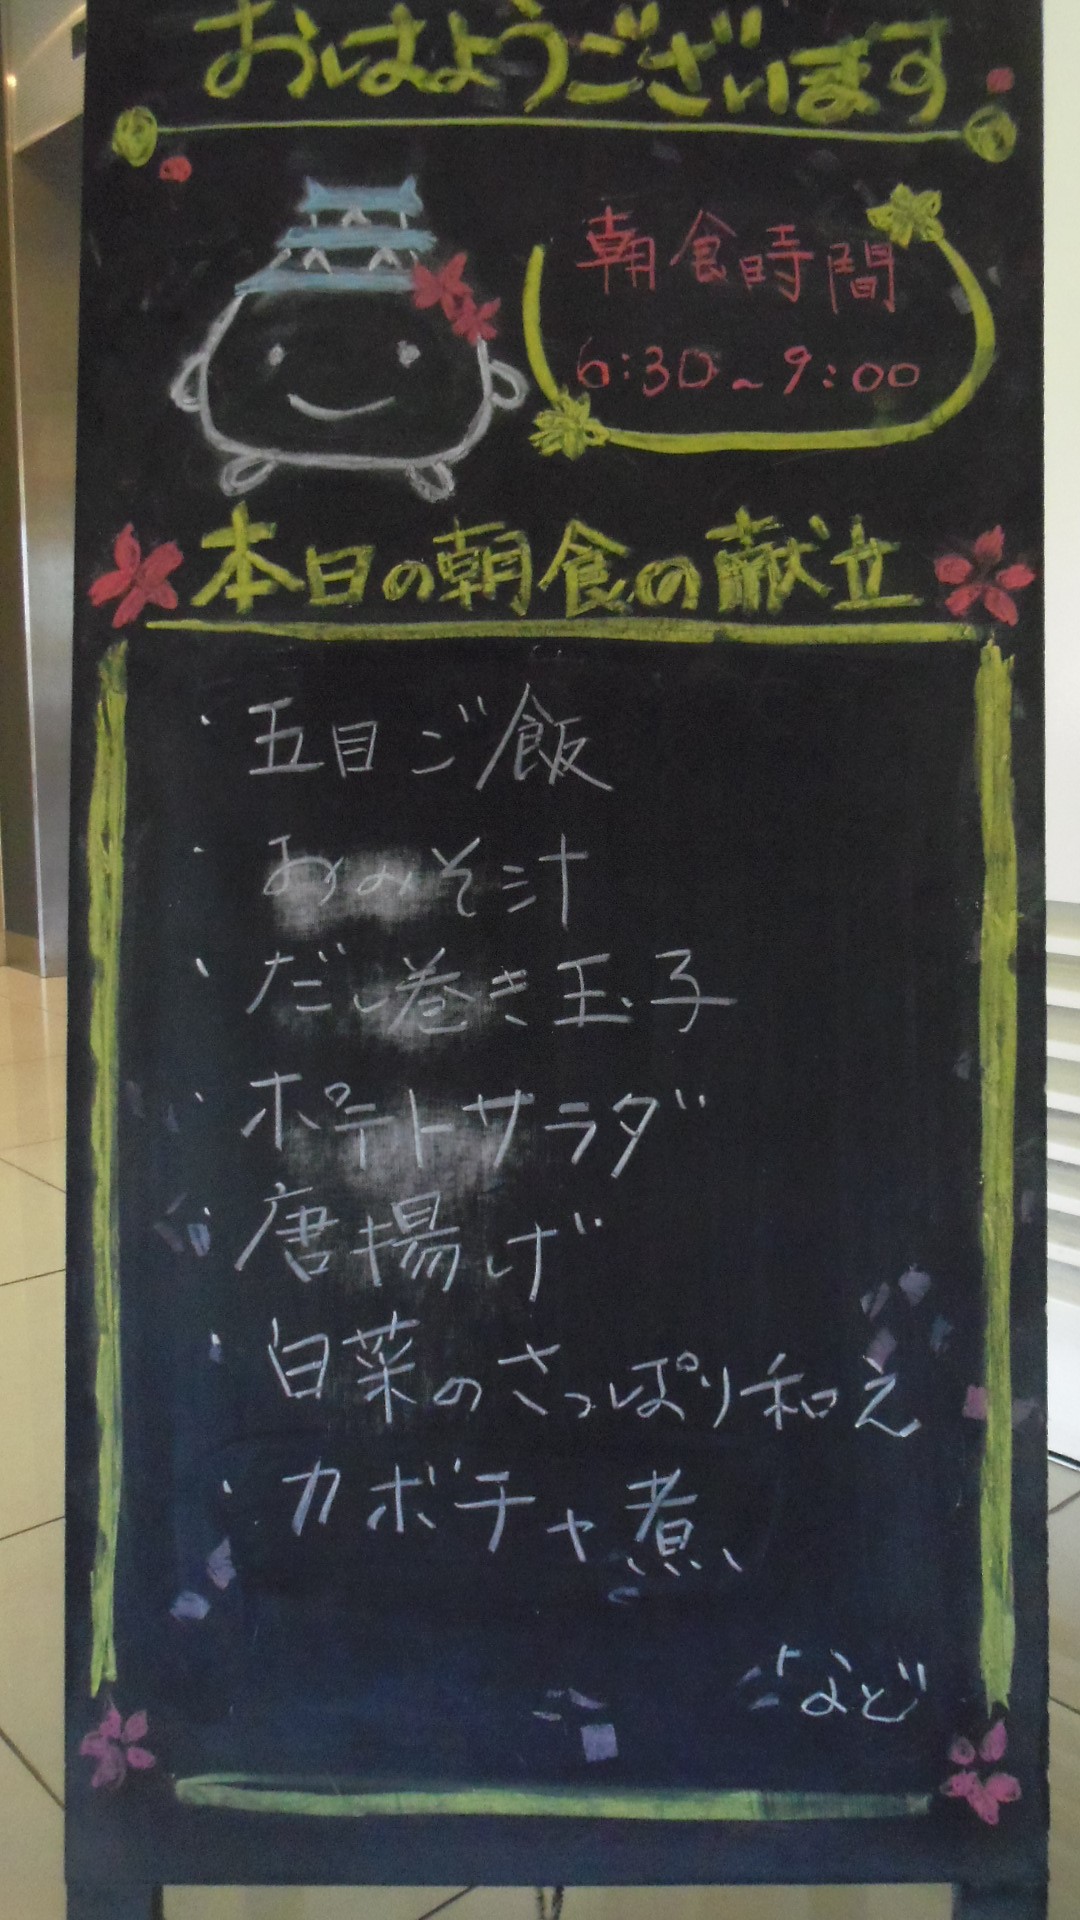 おはようございます
朝食時間
6:30~9:00
本日の朝食の献立
・五目ご飯
・おみそ汁
・だし巻き玉子
・ポテトサラダ
・唐揚げ
・白菜のさっぱり和え
・カボチャ煮
など